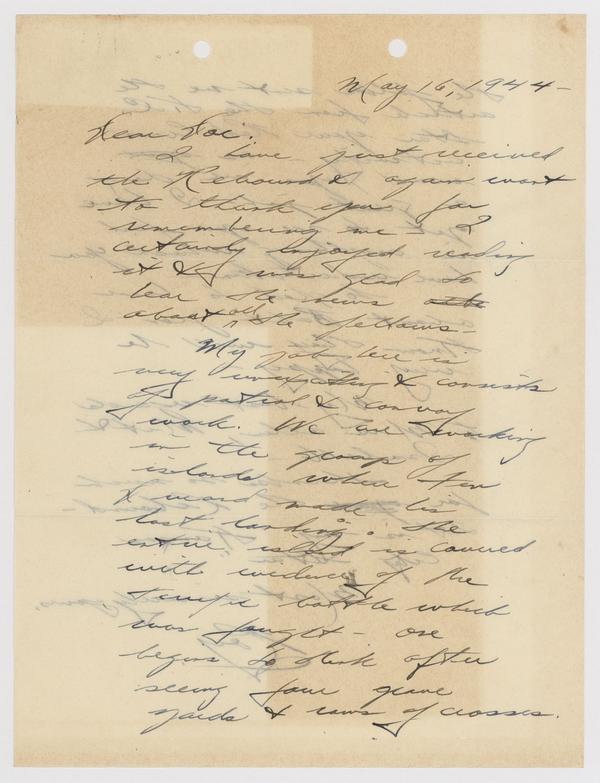 May 16, 1944-
Dear Doc:
I have just received
the Rebound & again want
to thank you for
remembering me - I
certainly enjoyed reading
it & I was glad to
hear the news
about all the fellows-
My job here is
very unexciting & consists
of patrol & convoy
work. We are working
in the group of
islands where
made his
last landing. The
entire island is covered
with evidence of the
terrific battle which
was fought - one
begins to think after
seeing four grave
yards & rows of crosses.